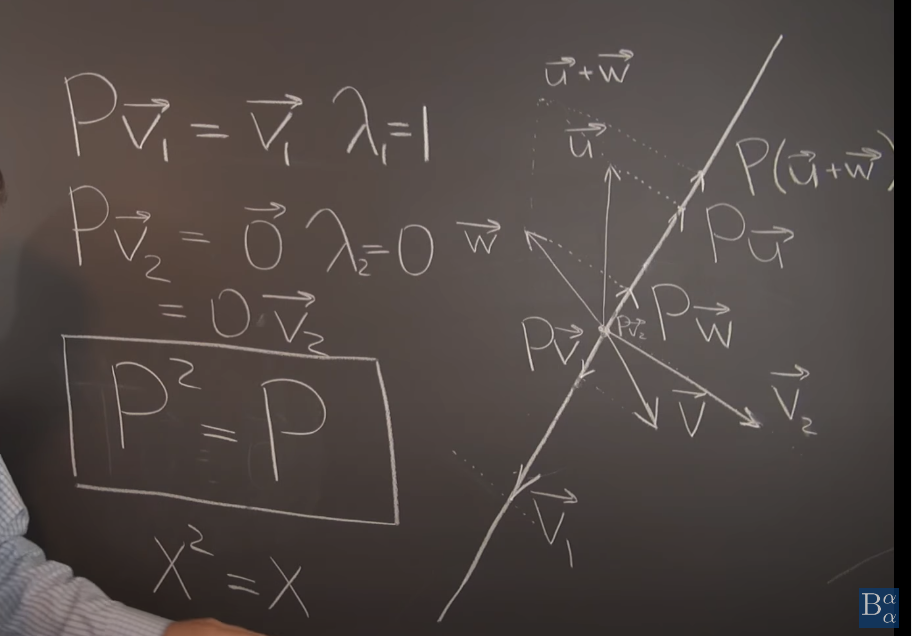 P v⃗₁ = v⃗₁ λ₁=1
P v⃗₂ = 0⃗ λ₂=0
= 0·v⃗₂
P² = P
x² = x
u⃗+w⃗
u⃗
P(u⃗+w⃗)
w⃗
Pu⃗
Pw⃗
Pv⃗₂
Pv⃗
v⃗
v⃗₂
v⃗₁
Bαα